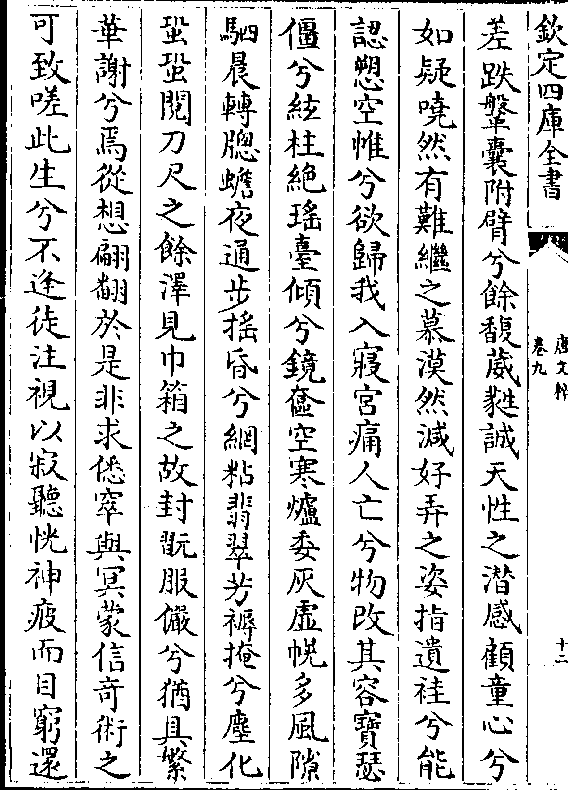 欽定四庫全書
唐文粹
卷九
十二
差跌鞶囊附臂兮餘馥葳蕤誠天性之潛感顧童心兮
如疑嘵然有難繼之慕漠然減好弄之姿指遺袿兮能
認愬空帷兮欲歸我入寢宮痛人亡兮物改其容寶瑟
僵兮絃柱絶瑤臺傾兮鏡奩空寒爐委灰虛幌多風隙
駟晨轉牕蟾夜通步揺昏兮網粘翡翠芳褥掩兮塵化
蛩蛩閱刀尺之餘澤見巾箱之故封翫服儼兮猶具繁
華謝兮焉從想翩翻於是非求僁窣與冥蒙信奇術之
可致嗟此生兮不逢徒注視以寂聽恍神疲而目窮還